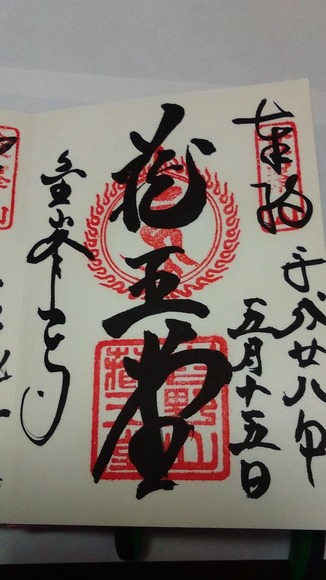 奉拝
平成廿八年
五月十五日
蔵王堂
金峯山寺